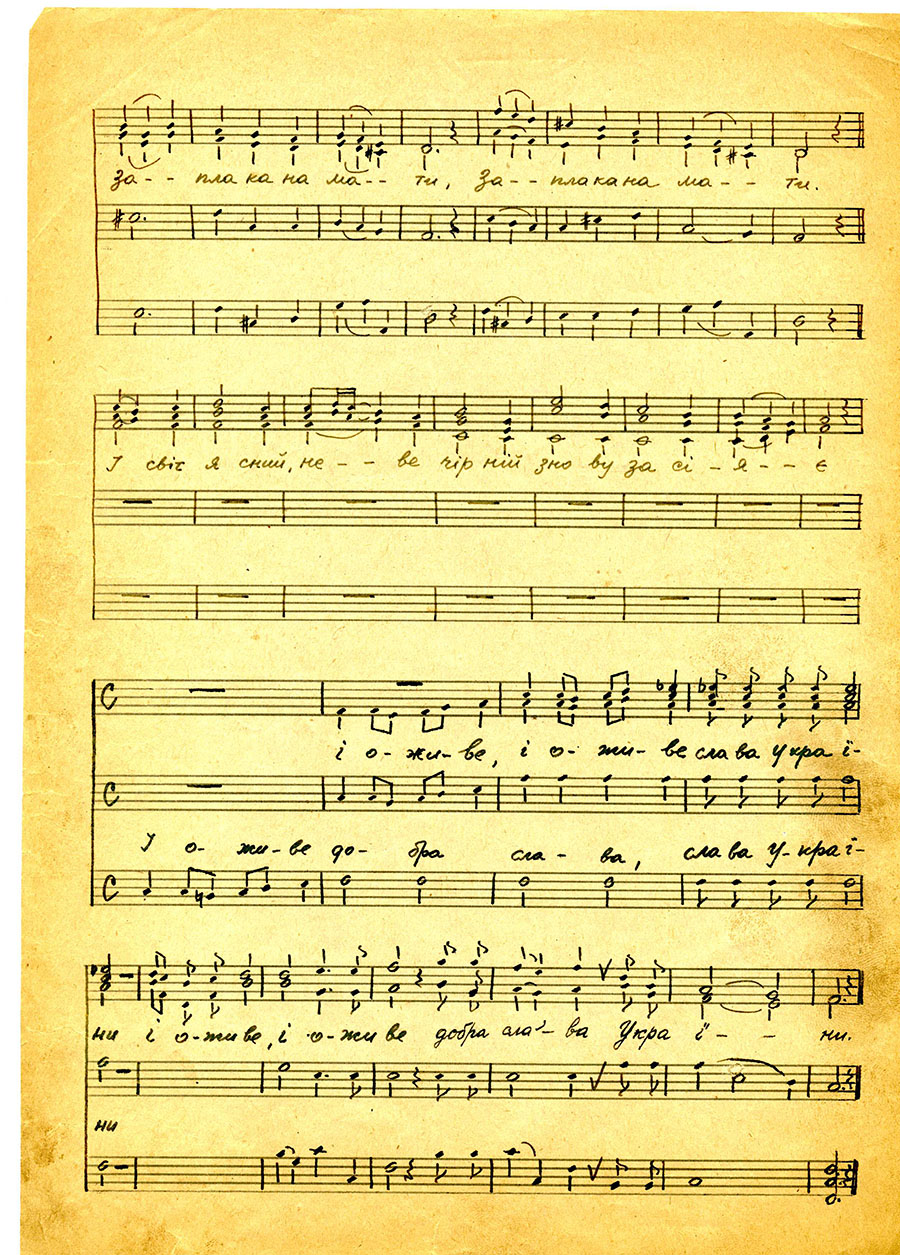 За-- плакана ма-- ти, За-- плакана ма-- ти.
І світ ясний, не-- вечірній знову засі-я--є
і о-жи-ве, і о-жи-ве слава украї-
І о-жи-ве до-бра сла-ва, слава У-краї-
ни і о-живе, і о-живе добра сла-ва Украї-- ни.
ни